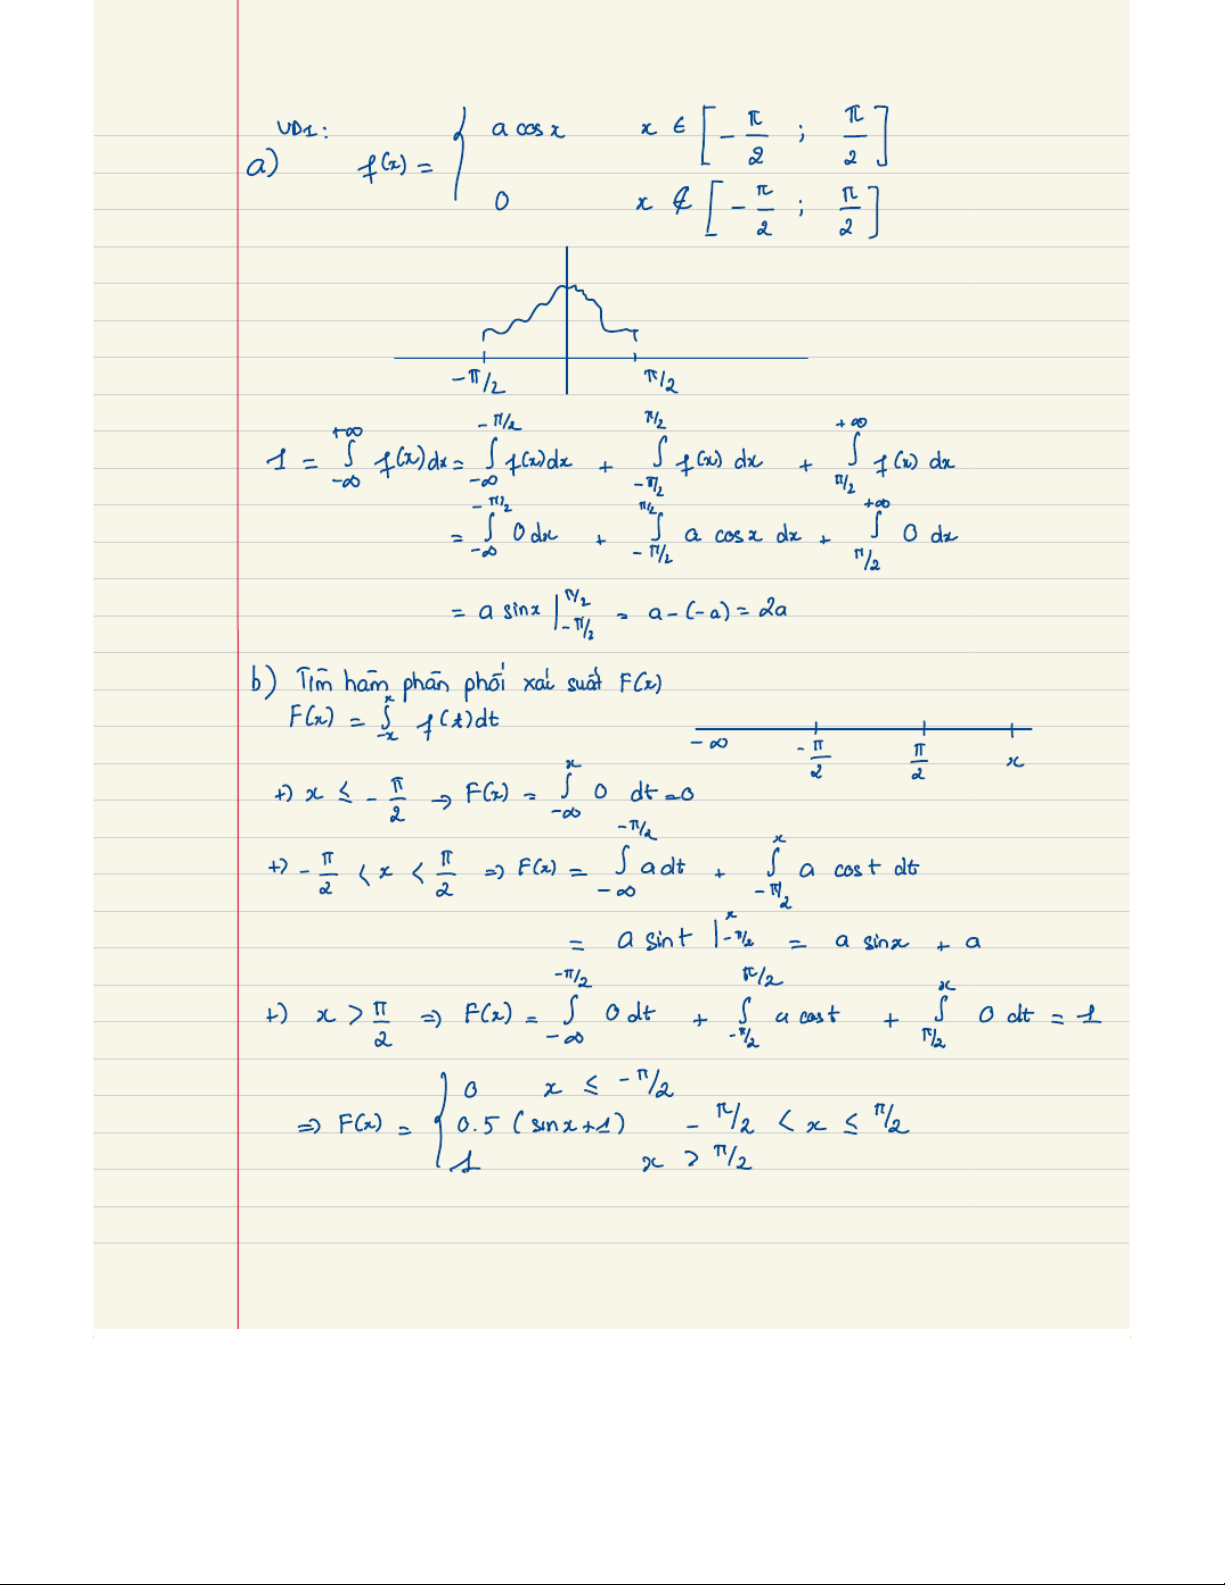 VD1:
a) f(x) = { a cos x x ∈ [ -π/2 ; π/2 ]
0 x ∉ [ -π/2 ; π/2 ]
-π/2 π/2
1 = ∫_{-∞}^{+∞} f(x)dx = ∫_{-∞}^{-π/2} f(x)dx + ∫_{-π/2}^{π/2} f(x) dx + ∫_{π/2}^{+∞} f(x) dx
= ∫_{-∞}^{-π/2} 0 dx + ∫_{-π/2}^{π/2} a cos x dx + ∫_{π/2}^{+∞} 0 dx
= a sin x |_{-π/2}^{π/2} = a - (-a) = 2a
b) Tìm hàm phân phối xác suất F(x)
F(x) = ∫_{-x}^{x} f(t)dt
-∞ -π/2 π/2 x
+) x ≤ -π/2 → F(x) = ∫_{-∞}^{x} 0 dt = 0
+) -π/2 < x < π/2 ⇒ F(x) = ∫_{-∞}^{-π/2} a dt + ∫_{-π/2}^{x} a cos t dt
= a sin t |_{-π/2}^{x} = a sin x + a
+) x > π/2 ⇒ F(x) = ∫_{-∞}^{-π/2} 0 dt + ∫_{-π/2}^{π/2} a cos t + ∫_{π/2}^{x} 0 dt = 1
⇒ F(x) = { 0 x ≤ -π/2
0.5 (sin x + 1) -π/2 < x ≤ π/2
1 x > π/2